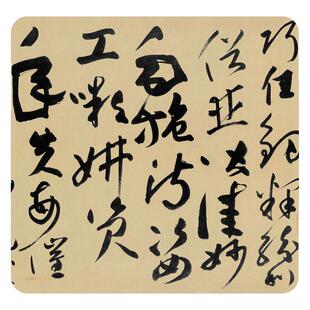 巧任釣釋紛利
俗並皆佳妙
毛施淑姿
工顰妍笑
年矢每催